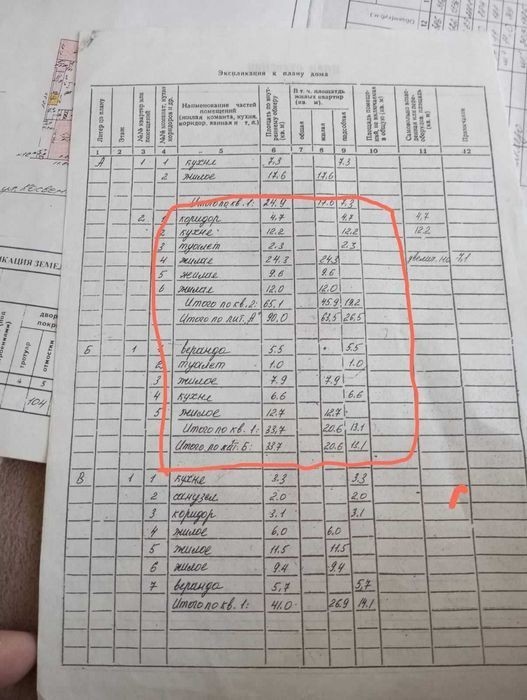 Экспликация к плану дома
Литер по плану
Этаж
№№ квартир или помещений
№№ комнат, кухни, коридоров и др.
Наименование частей помещений (жилая комната, кухня, коридор, ванная и т. д.)
Площадь по внутреннему обмеру (кв. м)
В т. ч. площадь жилых квартир (кв. м).
общая
жилая
подсобная
Примечание
1 2 3 4 5 6 7 8 9 10 11 12
А 1 1 кухне 7.3 7.3
2 жилое 17.6 17.6
Итого по кв. 1: 24.9 17.6 7.3
2 1 коридор 4.7 4.7 4,7
2 кухне 12.2 12.2 12.2
3 туалет 2.3 2.3
4 жилае 24.3 24.3 увелич. на 7,1
5 жилае 9.6 9.6
6 жилая 12.0 12.0
Итого по кв. 2: 65.1 45.9 19.2
Итого по лит. А" 90.0 63.5 26.5
Б 1 1 веранда 5.5 5.5
2 туалет 1.0 1.0
3 жилое 7.9 7.9
4 кухне 6.6 6.6
5 жилое 12.7 12.7
Итого по кв. 1: 33.7 20.6 13.1
Итого по лит. Б: 33.7 20.6 13.1
В 1 1 кухне 3.3 3.3
2 санузел 2.0 2.0
3 коридор 3.1 3.1
4 жилое 6.0 6.0
5 жилое 11.5 11.5
6 жилое 9.4 9.4
7 веранда 5,7 5,7
Итого по кв. 1: 41.0 26.9 14.1
КАЦИЯ ЗЕМЕ
двор
покры
тротуар
отмостки
4 5
104